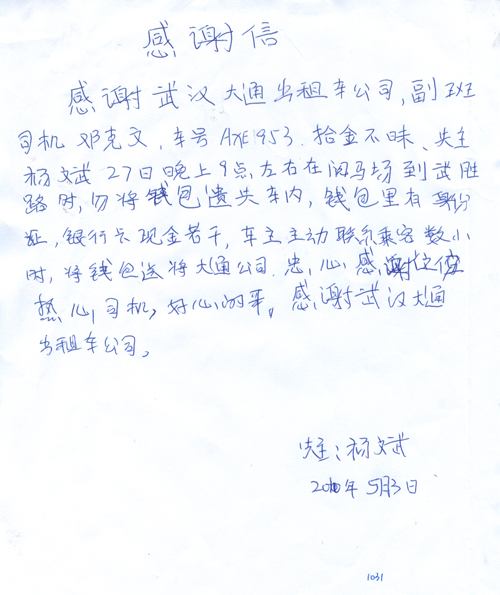 感谢信
感谢武汉大通出租车公司,副班
司机 邓克文,车号AXE953.拾金不昧、失主
杨文斌27日晚上9点,左右在阅马场到武胜
路时,勿将钱包遗失车内,钱包里有身份
证,银行卡现金若干,车主主动联系乘客数小
时,将钱包送将大通公司.忠,心感谢这位
热心,司机,好心的哥。感谢武汉大通
出租车公司。
失主:杨文斌
2010年5月3日
1031